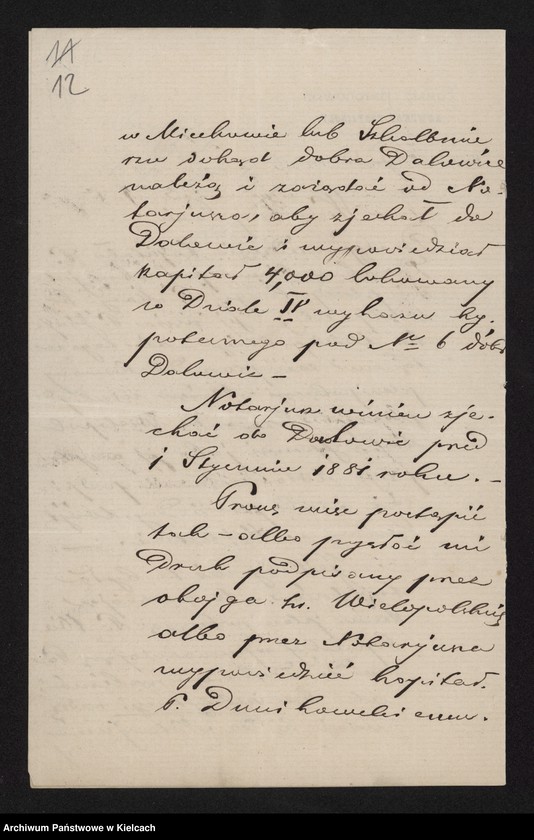 11
12
w Miechowie lub Szkalbmie
rzu dokąd dobra Dalewice
należą i zażądać od No-
tarjusza, aby zjechał do
Dalewic i wypowiedział
kapitał 4,000 lokowany
w Dziale IV wykazu hy-
potecznego pod Nr 6 dóbr
Dalewic —
Notarjusz winien zje-
chać do Dalewic przed
1 Stycznia 1881 roku. —
Proszę więc postąpić
tak — albo przysłać mi
Druk podpisany przez
obojga hr. Wielopolskich
albo przez Notarjusza
wypowiedzieć kapitał.
P. Dunikowskiemu.
Archiwum Państwowe w Kielcach